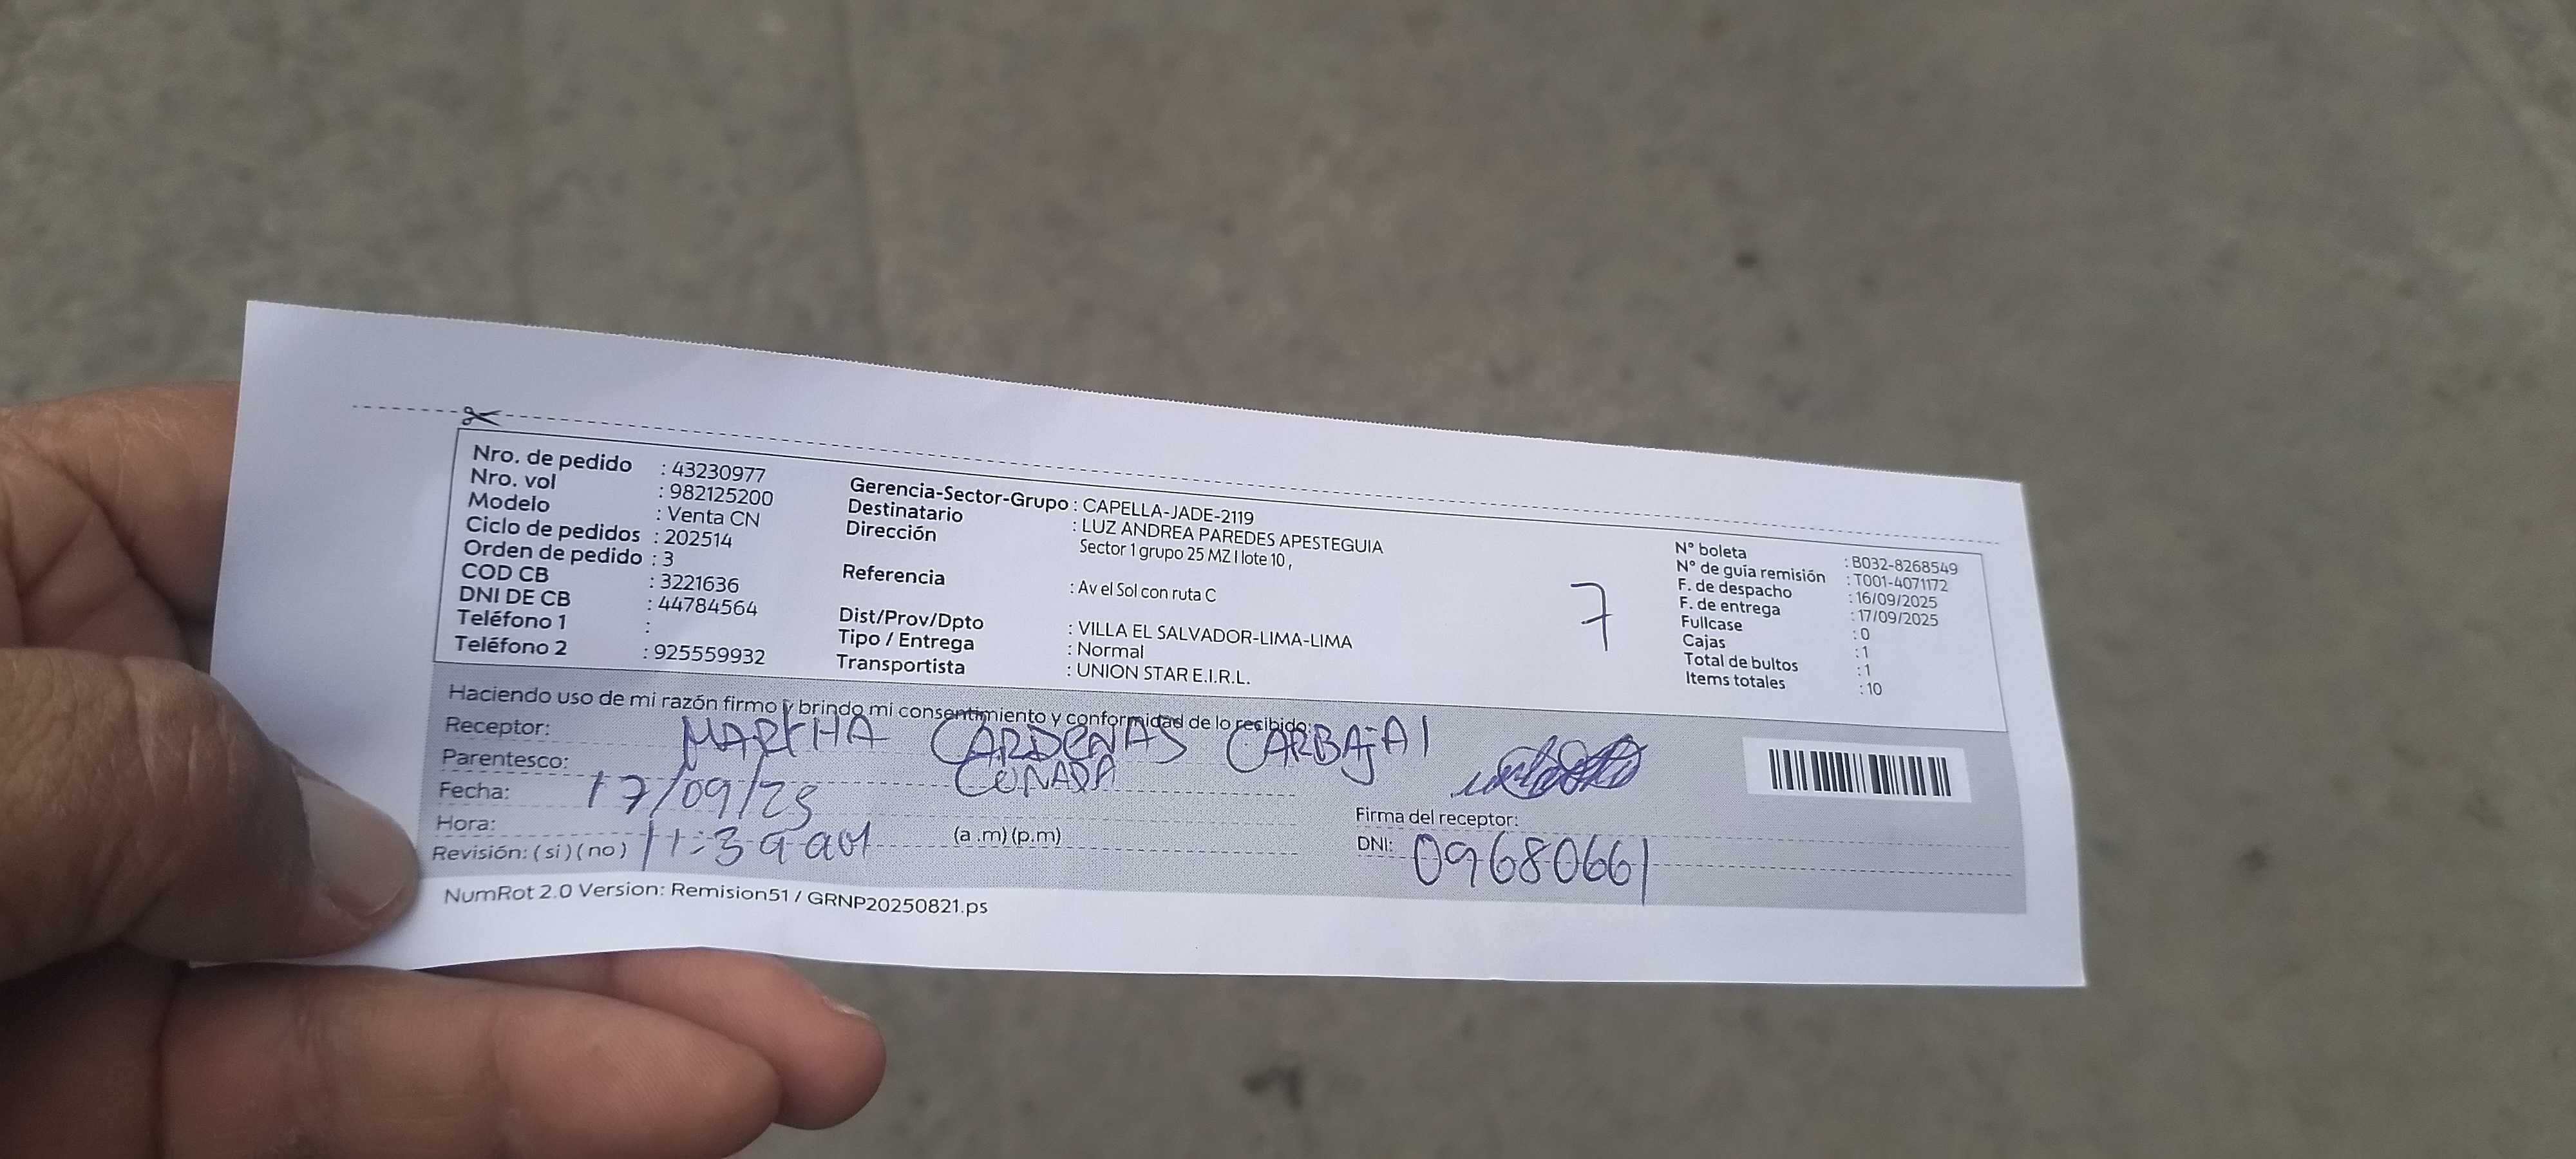 Nro. de pedido : 43230977
Nro. vol : 982125200
Modelo : Venta CN
Ciclo de pedidos : 202514
Orden de pedido : 3
COD CB : 3221636
DNI DE CB : 44784564
Teléfono 1 :
Teléfono 2 : 925559932
Gerencia-Sector-Grupo : CAPELLA-JADE-2119
Destinatario : LUZ ANDREA PAREDES APESTEGUIA
Dirección Sector 1 grupo 25 MZ I lote 10 ,
Referencia : Av el Sol con ruta C
Dist/Prov/Dpto : VILLA EL SALVADOR-LIMA-LIMA
Tipo / Entrega : Normal
Transportista : UNION STAR E.I.R.L.
7
N° boleta : B032-8268549
N° de guía remisión : T001-4071172
F. de despacho : 16/09/2025
F. de entrega : 17/09/2025
Fullcase : 0
Cajas : 1
Total de bultos : 1
Items totales : 10
Haciendo uso de mi razón firmo y brindo mi consentimiento y conformidad de lo recibido:
Receptor: MARTHA CARDENAS CARBAJAl
Parentesco: CUÑADA
Fecha: 17/09/25
Hora: 11:39 am (a.m) (p.m)
Revisión: ( si ) ( no )
Firma del receptor:
DNI: 09680661
NumRot 2.0 Version: Remision51 / GRNP20250821.ps